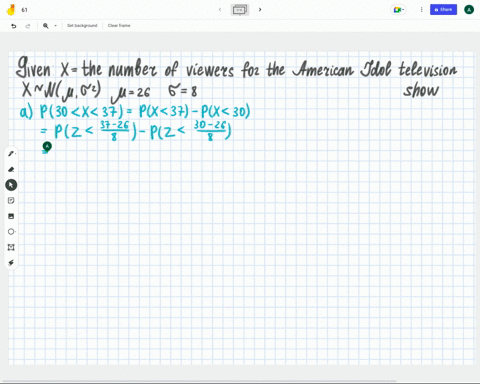 61
Set background
Clear frame
Share
A
Given X = the number of viewers for the American Idol television
X ~ N(μ, σ²) μ = 26 σ = 8 show
a) P(30 < X < 37) = P(X < 37) - P(X < 30)
= P(Z < \frac{37-26}{8}) - P(Z < \frac{30-26}{8})
A